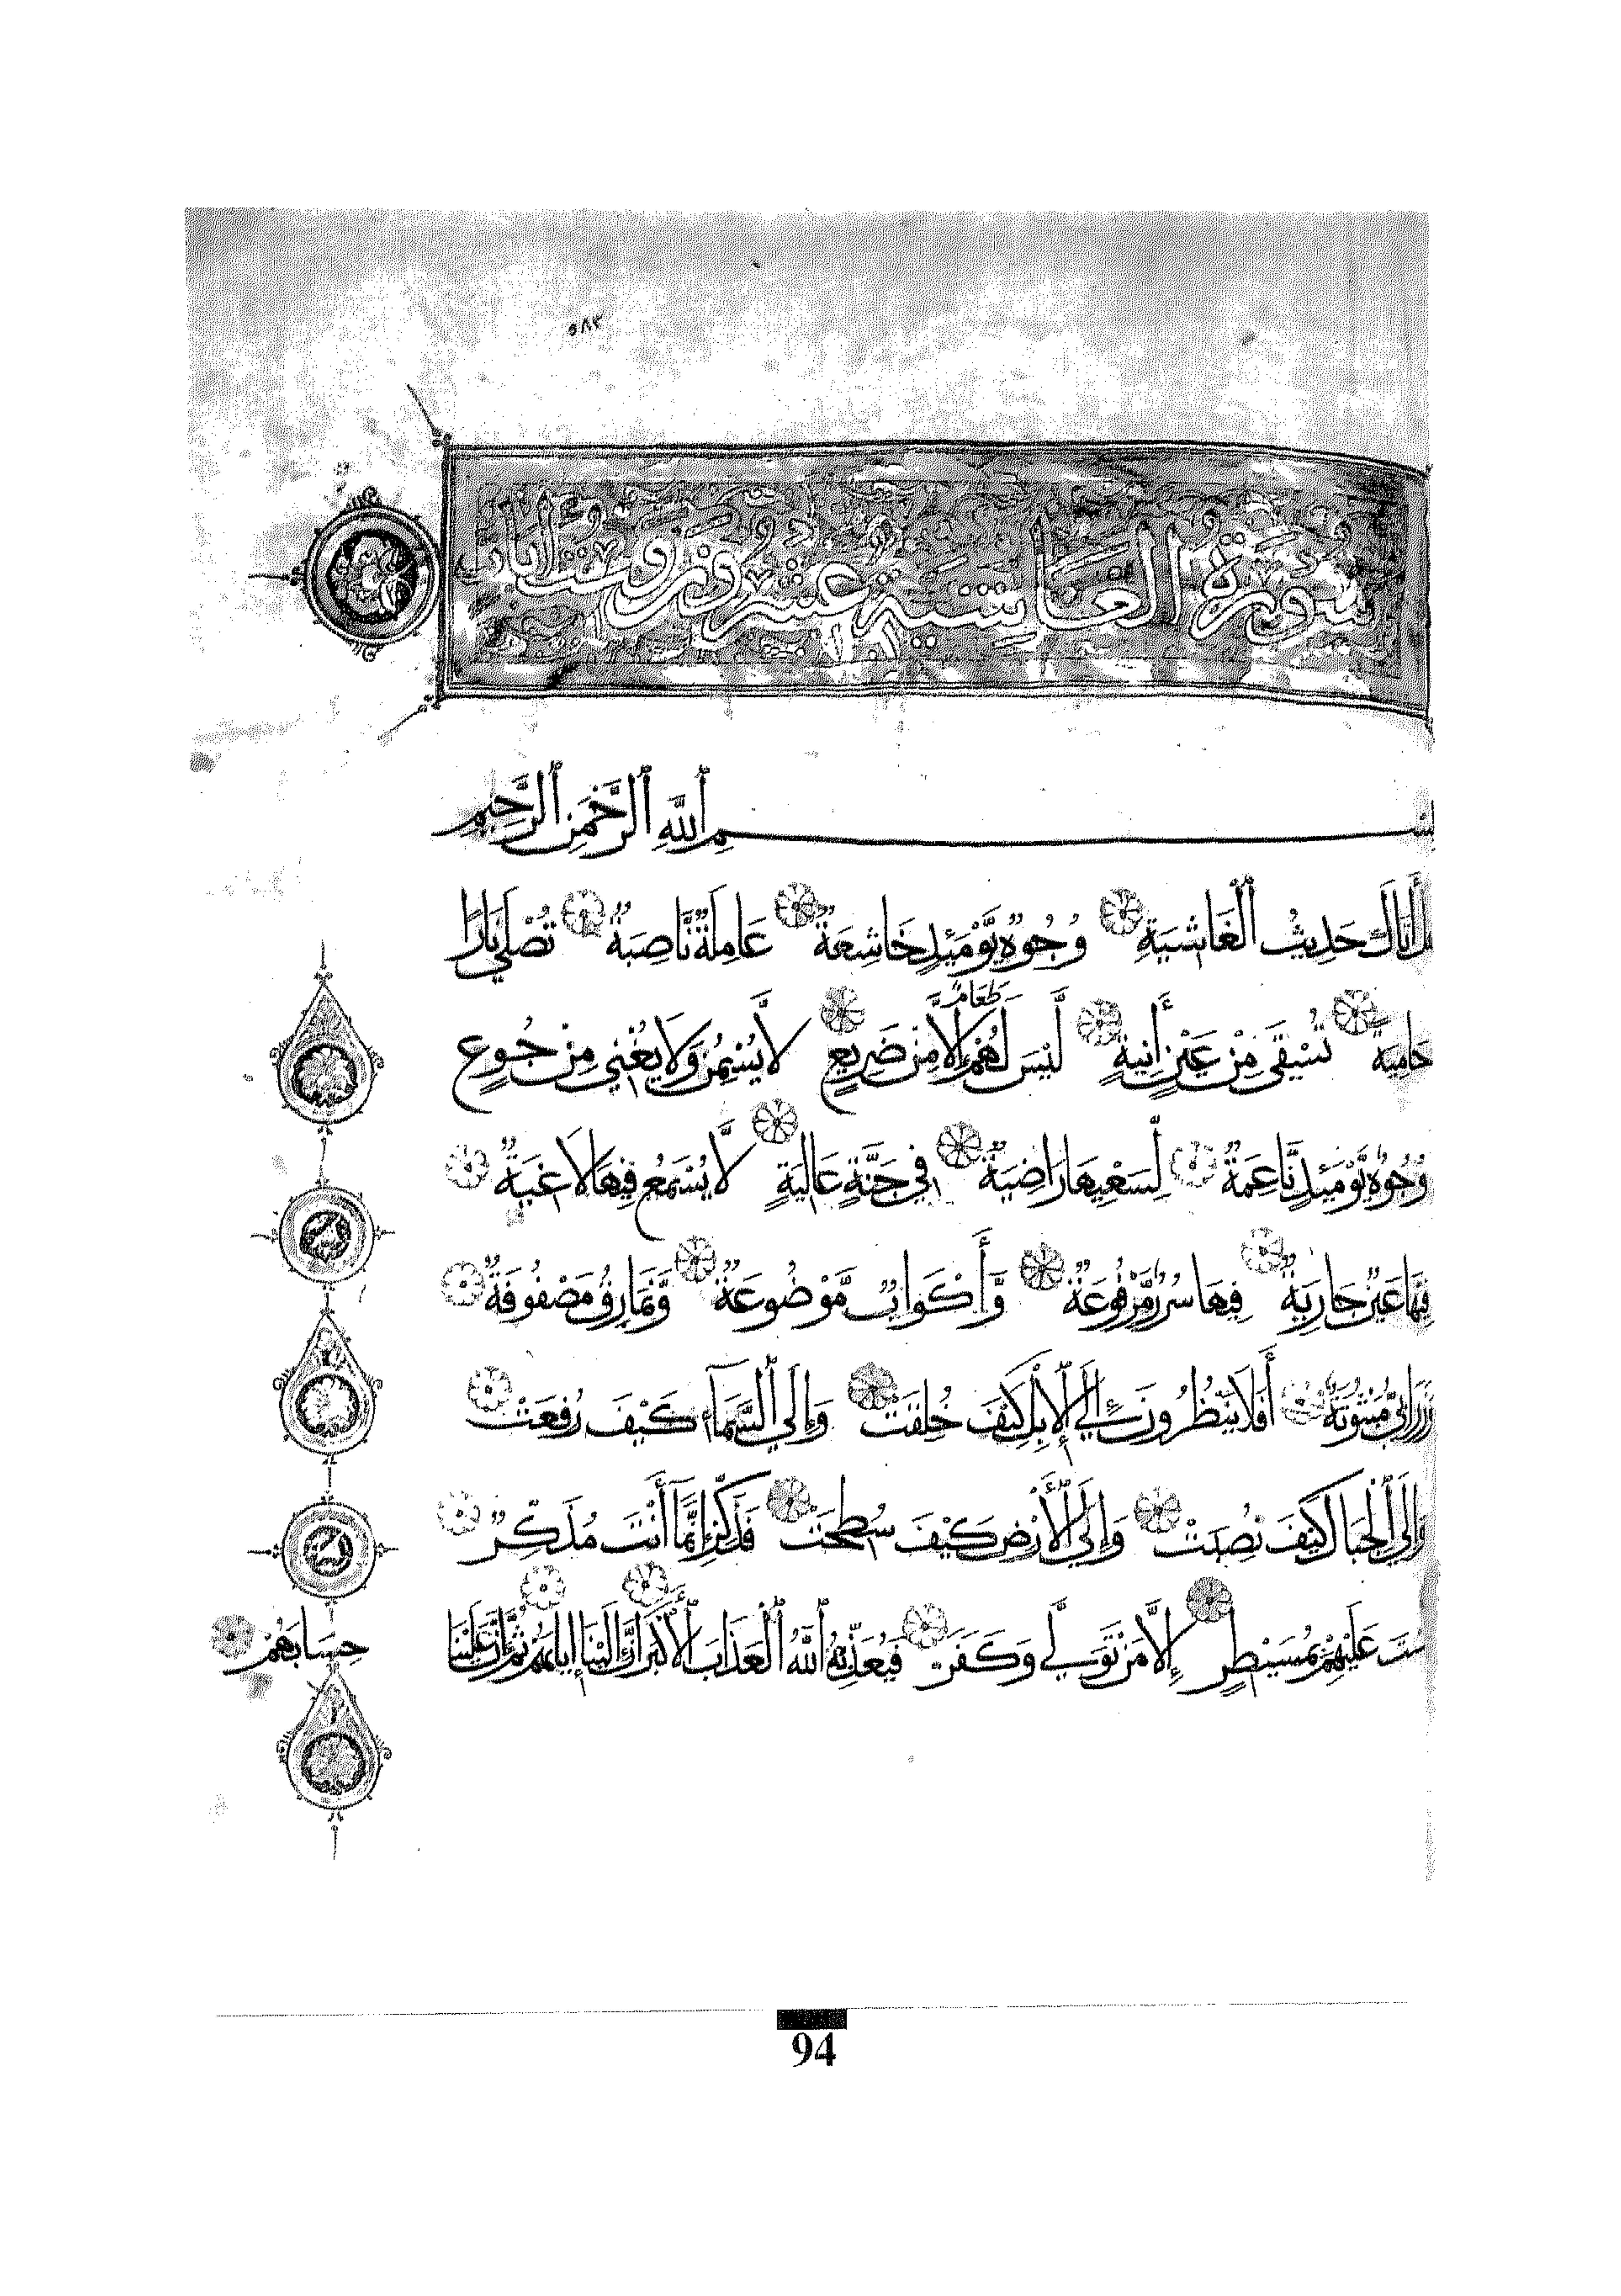 ٥٨٣
سورة الغاشية عشرون وست آيات
بِسْمِ ٱللَّهِ ٱلرَّحْمَٰنِ ٱلرَّحِيمِ
أَتَاكَ حَدِيثُ ٱلْغَاشِيَةِ وُجُوهٌ يَوْمَئِذٍ خَاشِعَةٌ عَامِلَةٌ نَّاصِبَةٌ تُصْلَى نَارًا
حَامِيَةً تُسْقَى مِنْ عَيْنٍ آنِيَةٍ لَيْسَ لَهُمْ طَعَامٌ إِلَّا مِنْ ضَرِيعٍ لَا يُسْمِنُ وَلَا يُغْنِي مِنْ جُوعٍ
وُجُوهٌ يَوْمَئِذٍ نَّاعِمَةٌ لِّسَعْيِهَا رَاضِيَةٌ فِي جَنَّةٍ عَالِيَةٍ لَّا يُسْمَعُ فِيهَا لَاغِيَةٌ
فِيهَا عَيْنٌ جَارِيَةٌ فِيهَا سُرُرٌ مَّرْفُوعَةٌ وَّأَكْوَابٌ مَّوْضُوعَةٌ وَّنَمَارِقُ مَصْفُوفَةٌ
وَزَرَابِيُّ مَبْثُوثَةٌ أَفَلَا يَنْظُرُونَ إِلَى ٱلْإِبِلِ كَيْفَ خُلِقَتْ وَإِلَى ٱلسَّمَآءِ كَيْفَ رُفِعَتْ
وَإِلَى ٱلْجِبَالِ كَيْفَ نُصِبَتْ وَإِلَى ٱلْأَرْضِ كَيْفَ سُطِحَتْ فَذَكِّرْ إِنَّمَآ أَنْتَ مُذَكِّرٌ
لَسْتَ عَلَيْهِمْ بِمُسَيْطِرٍ إِلَّا مَنْ تَوَلَّى وَكَفَرَ فَيُعَذِّبُهُ ٱللَّهُ ٱلْعَذَابَ ٱلْأَكْبَرَ إِنَّ إِلَيْنَا إِيَابَهُمْ ثُمَّ إِنَّ عَلَيْنَا
حِسَابَهُمْ
94